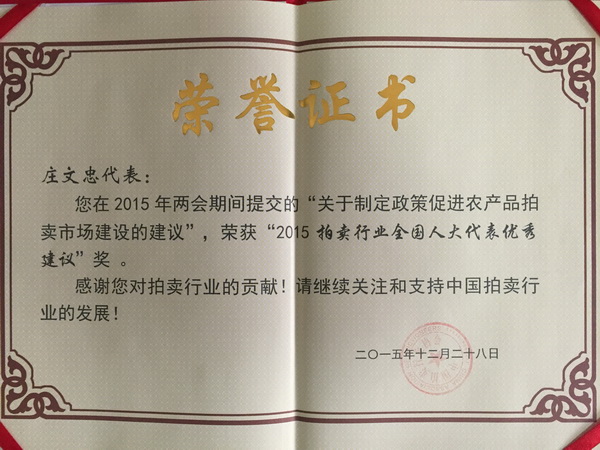 荣誉证书
庄文忠代表：
您在2015年两会期间提交的“关于制定政策促进农产品拍
卖市场建设的建议”，荣获“2015 拍卖行业全国人大代表优秀
建议”奖。
感谢您对拍卖行业的贡献！请继续关注和支持中国拍卖行
业的发展！
二〇一五年十二月二十八日